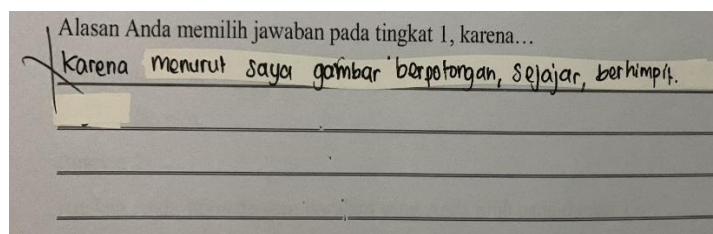 Alasan Anda memilih jawaban pada tingkat 1, karena...
Karena menurut saya gambar berpotongan, sejajar, berhimpit.